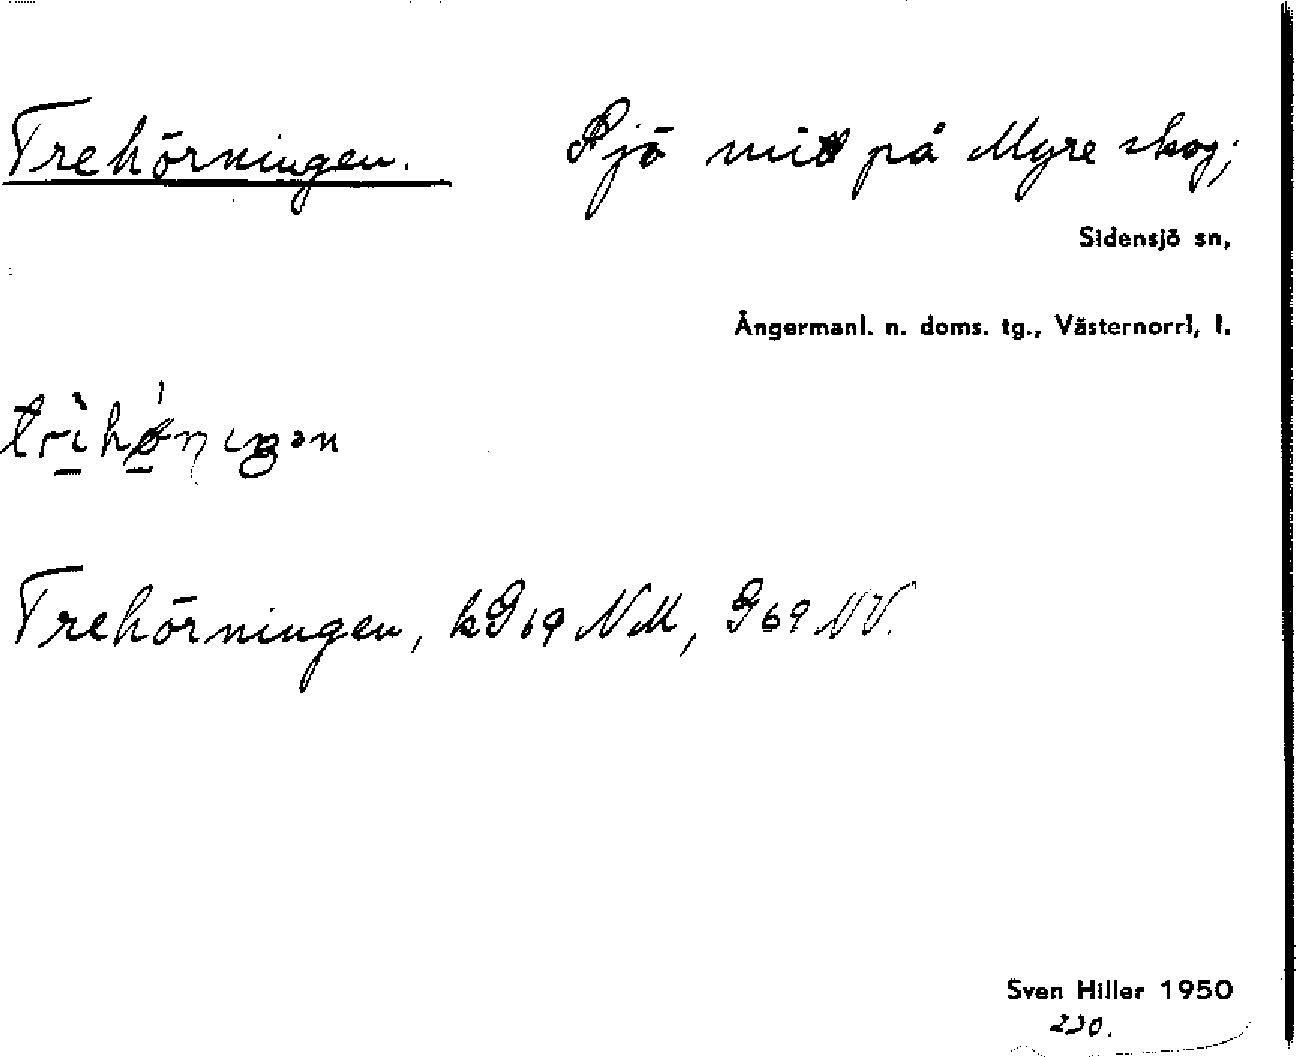 Trehörningen. Sjö mitt på Myre skog;
Sidensjö sn,
Ångermanl. n. doms. tg., Västernorrl. l.
Trehörningen, kG69 NM, G69 NV.
Sven Hiller 1950
230.